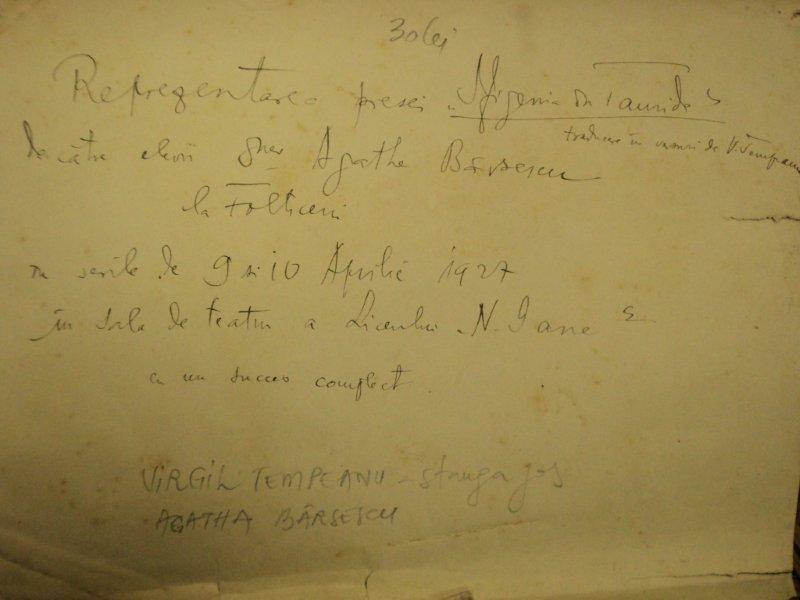 30 lei
Reprezentarea piesei „Ifigenia in Taurida"
traducere în versuri de V. Tempeanu
de către elevii Dnei Agathe Bârsescu
la Fălticeni
în serile de 9 si 10 Aprilie 1927
în sala de teatru a Liceului „N. Gane"
cu un succes complect.
VIRGIL TEMPEANU - stanga jos
AGATHA BÂRSESCU